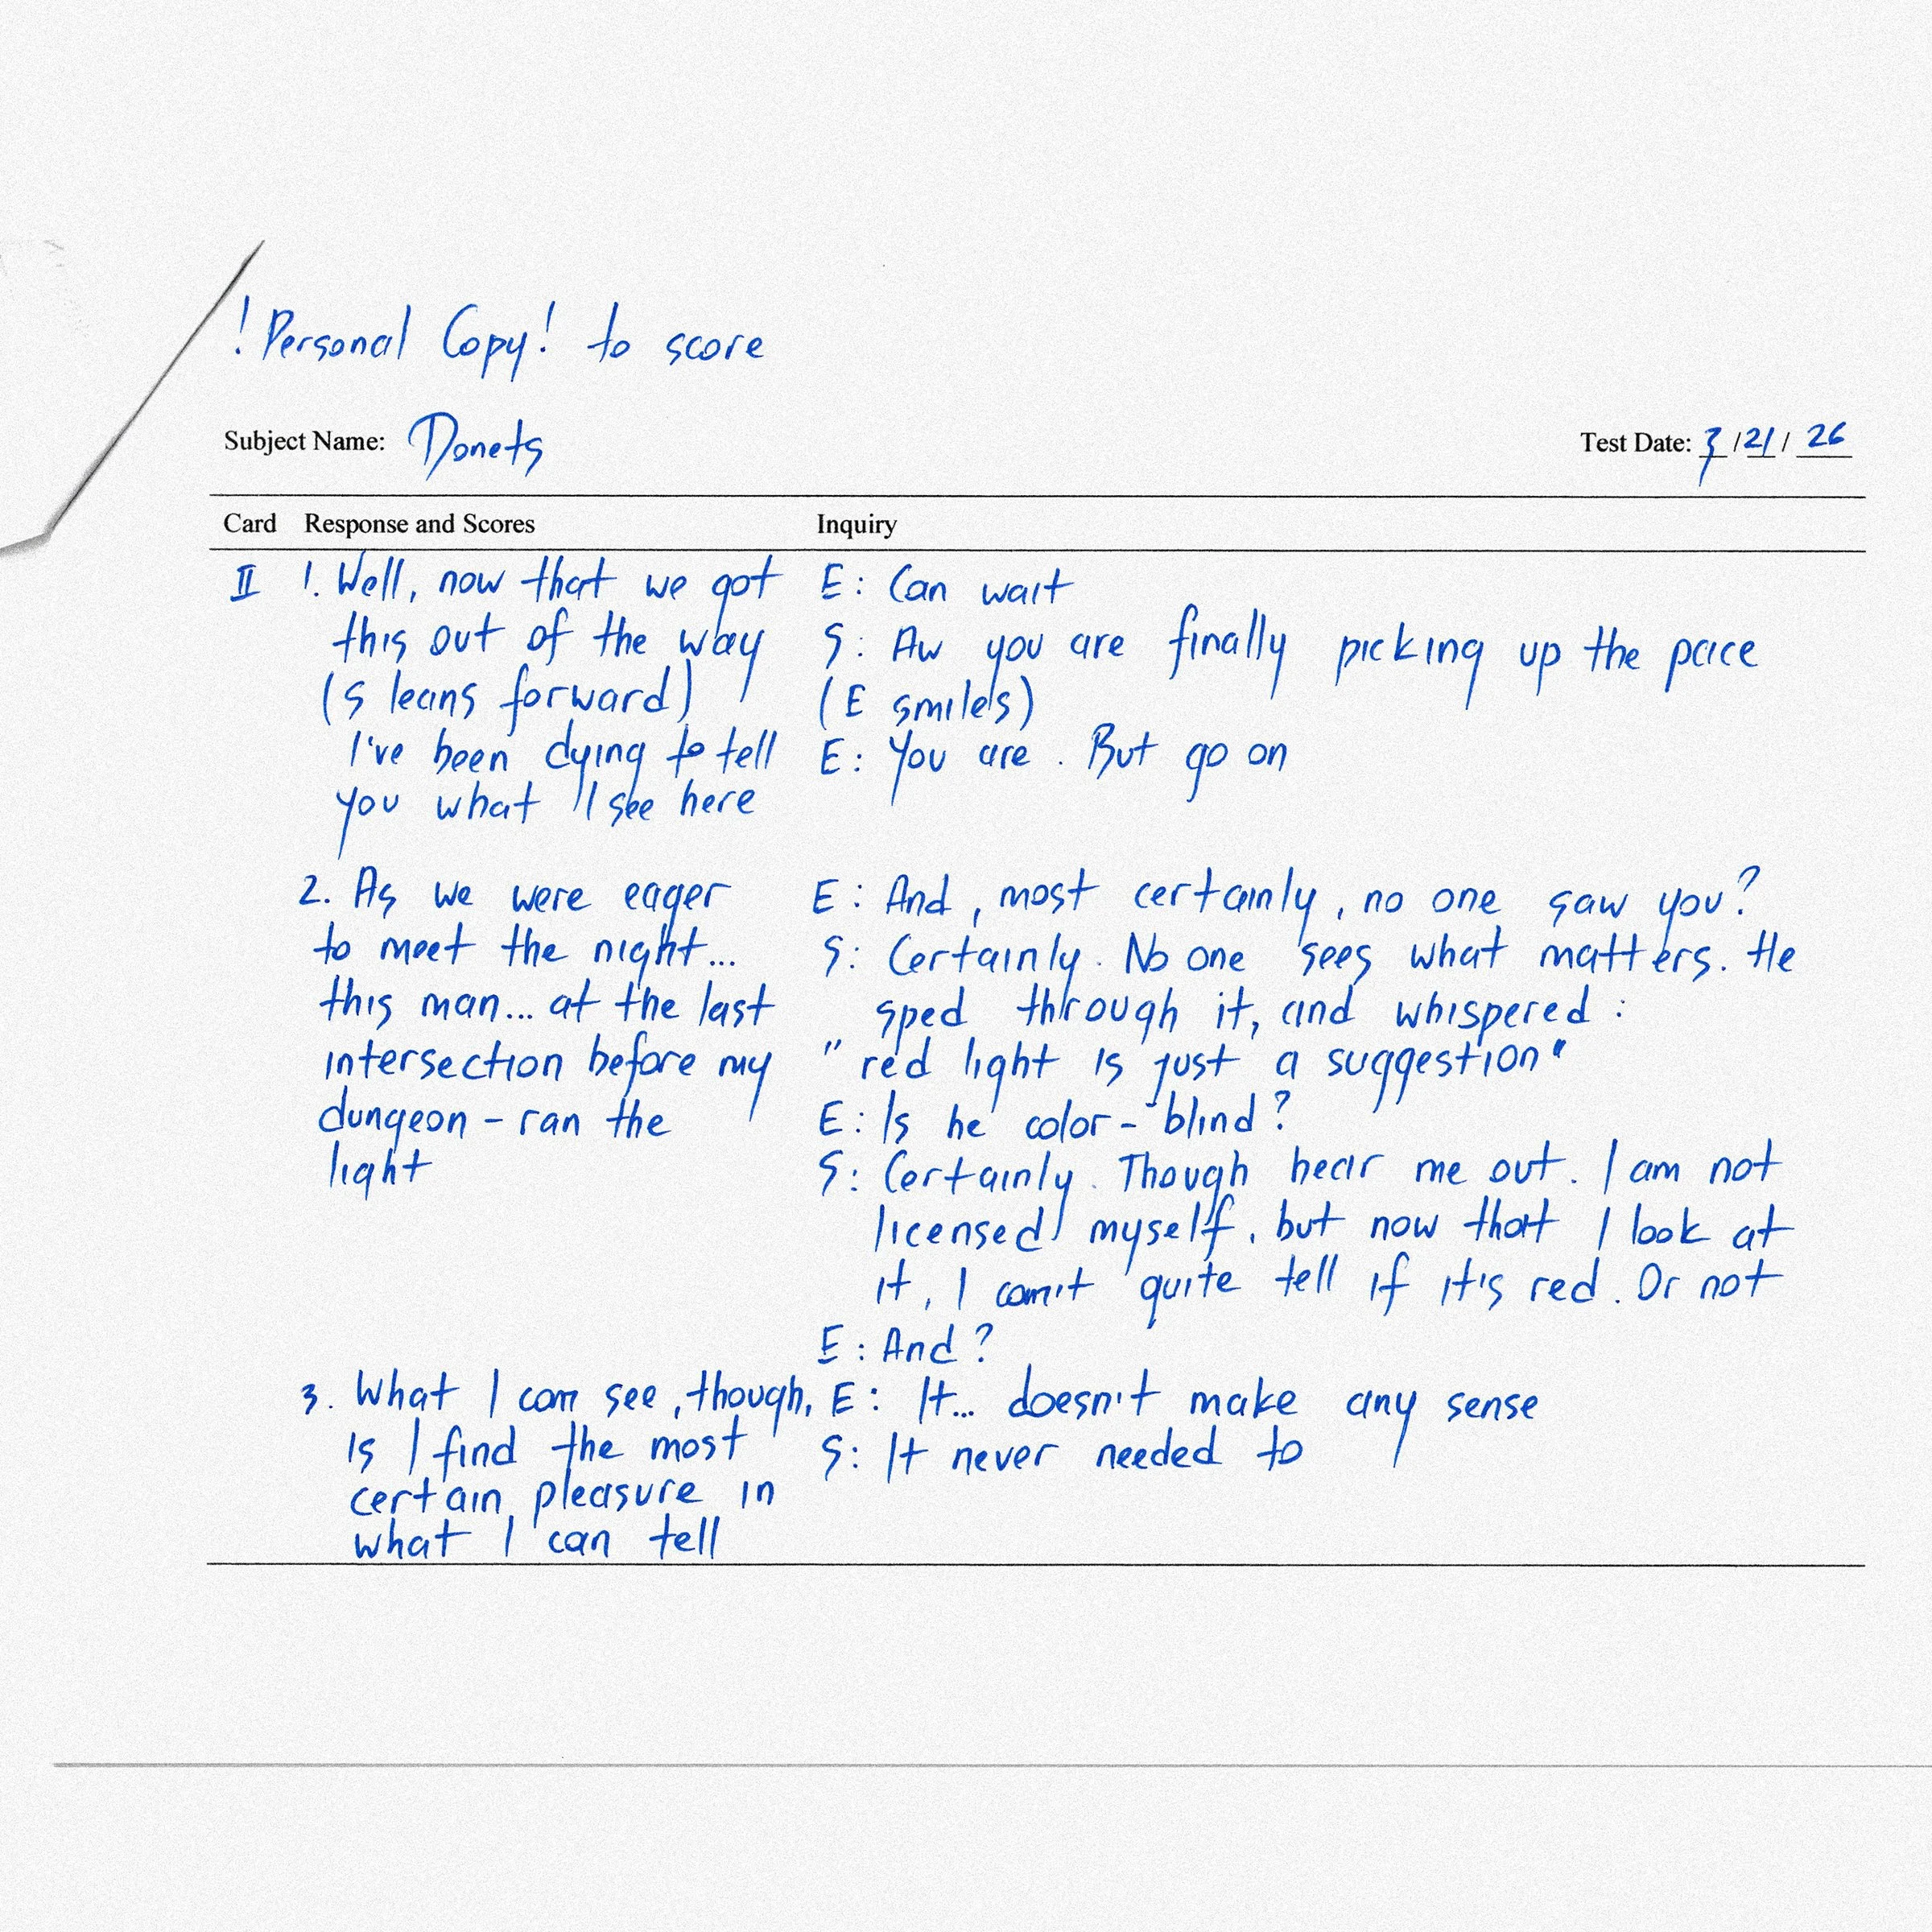 !Personal Copy! to score
Subject Name: Donets
Test Date: 3/21/26
Card Response and Scores Inquiry
II 1. Well, now that we got
this out of the way
(S leans forward)
I've been dying to tell
you what I see here
E: Can wait
S: Aw you are finally picking up the pace
(E smiles)
E: You are. But go on
2. As we were eager
to meet the night...
this man... at the last
intersection before my
dungeon - ran the
light
E: And, most certainly, no one saw you?
S: Certainly. No one sees what matters. He
sped through it, and whispered:
"red light is just a suggestion"
E: Is he color-blind?
S: Certainly. Though hear me out. I am not
licensed myself, but now that I look at
it, I can't quite tell if it's red. Or not
E: And?
3. What I can see, though,
is I find the most
certain pleasure in
what I can tell
E: It... doesn't make any sense
S: It never needed to